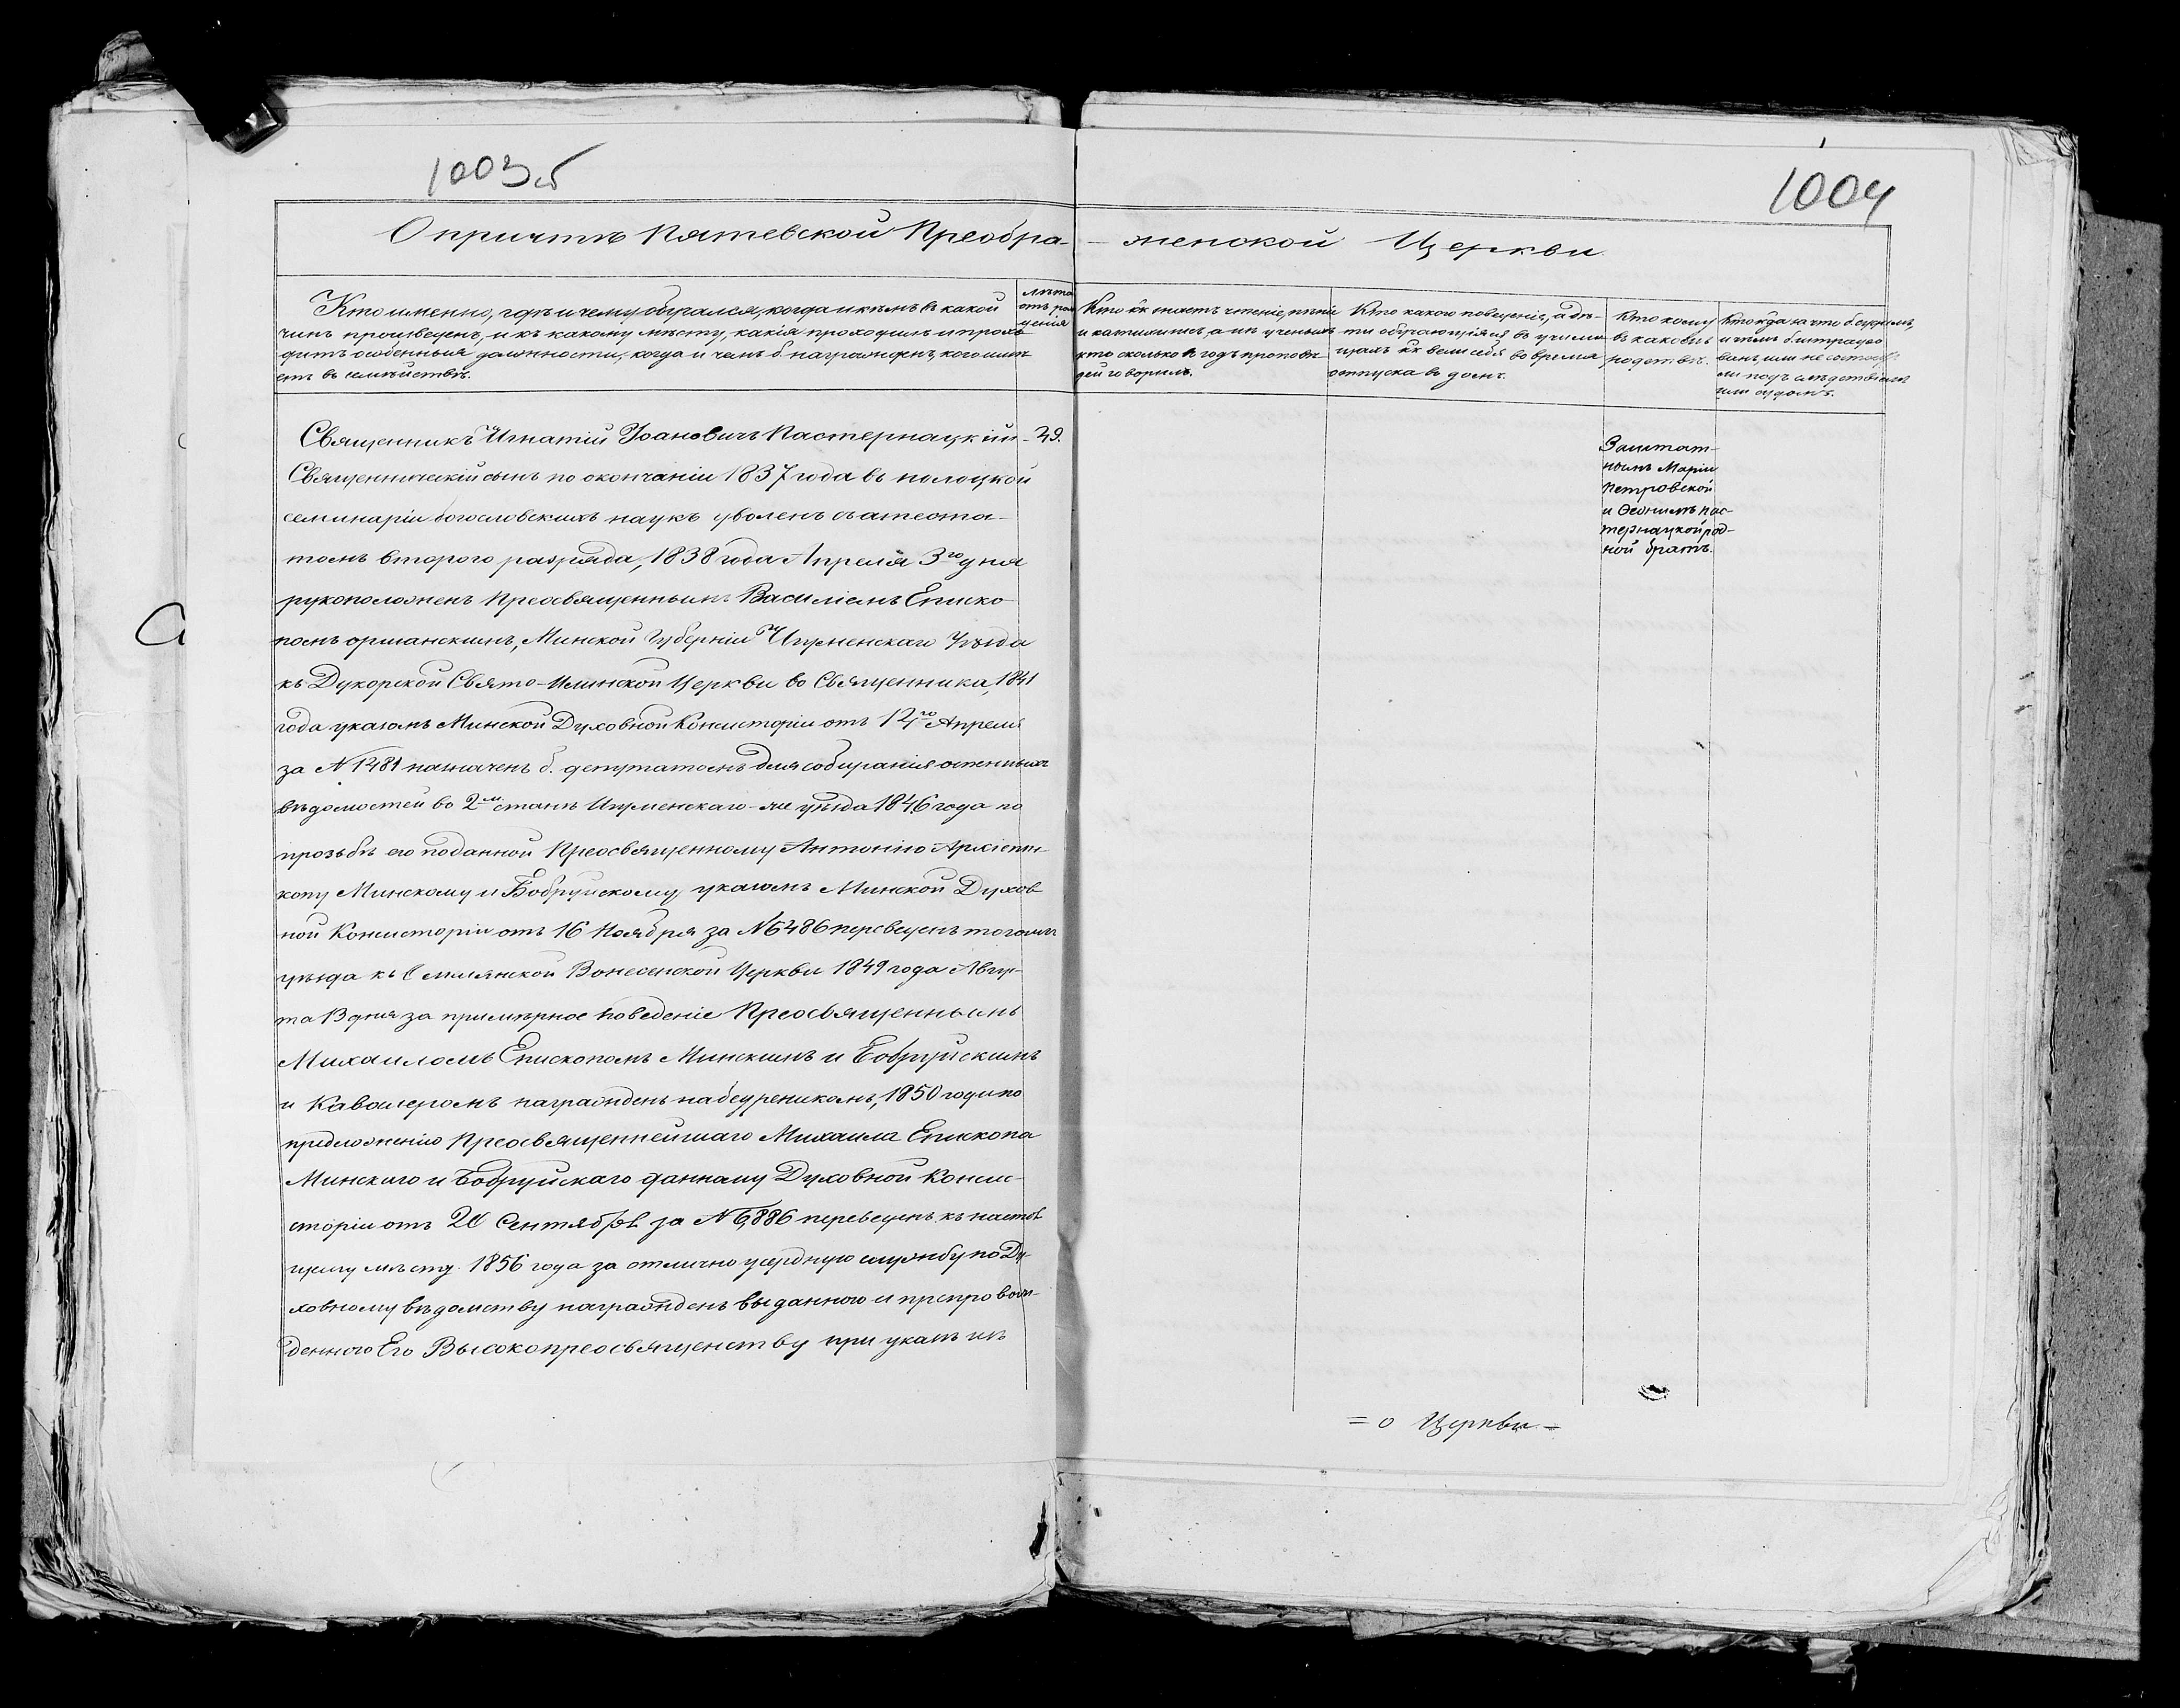 1003 об
1004
О причтѣ Пятевской Преобра-
женской Церкви.
Кто именно, гдѣ и чему обучался, когда и кѣмъ въ какой
чинъ произведенъ, и къ какому мѣсту, какія проходилъ и прохо
дитъ особенныя должности, когда и чѣмъ б. награжденъ, кого имѣ
етъ въ семѣйствѣ.
Лѣта
отъ рож
денія
Кто кк знаетъ чтеніе, пѣніе
и катихизисъ, а изъ ученыхъ
кто сколько въ годъ проповѣ
дей говорилъ.
Кто какого поведенія, а дѣ-
ти обучающіяся въ учили-
щахъ кк вели себя во время
отпуска въ домъ.
Кто кому
въ какомъ
родствѣ.
Кто кгда за что б. судимъ,
и чѣмъ б. штрафо
ванъ, или не состоитъ
ли подъ слѣдствіемъ
или судомъ.
Священникъ Игнатій Іоановичъ Пастернацкій - 39.
Священническій сынъ по окончаніи 1837 года въ полоцкой
семинаріи богословскихъ наукъ уволенъ съ атеста-
томъ второго разряда, 1838 года Апреля 3го дня
рукоположенъ Преосвященнымъ Василіемъ Еписко
помъ оршанскимъ, Минской Губерніи Игуменскаго Уѣзда
къ Дукорской Свято-Илинской Церкви во Священника, 1841
года указомъ Минской Духовной Консисторіи отъ 12го Апреля
за № 1481 назначенъ б. депутатомъ для собиранія
вѣдомостей во 2м станѣ Игуменскаго-же уѣзда 1846 года по
прозьбѣ его поданной Преосвященному Антонію Архіепис-
копу Минскому и Бобруйскому указомъ Минской Духов
ной Консисторіи отъ 16 Ноября за № 6486 переведенъ тогожъ
уѣзда къ Смилянской Вонесенской Церкви 1849 года Авгу-
та 13 дня за примѣрное поведеніе Преосвященнымъ
Михаиломъ Епископомъ Минскимъ и Бобруйскимъ
и Кавалеромъ награжденъ набедреникомъ, 1850 года по
предложенію Преосвященнейшаго Михаила Епископа
Минскаго и Бобруйскаго данному Духовной Консис-
сторіи отъ 20 Сентября за № 6,886 переведенъ къ настоя
щему мѣсту. 1856 года за отлично усердную службу по Ду-
ховному вѣдомству награжденъ выданного и препровож-
денного Его Высокопреосвященству при указѣ изъ
Заштат-
нымъ Маріи
Петровской
и Пас-
тернацкой род-
ной братъ.
= о Церкви =